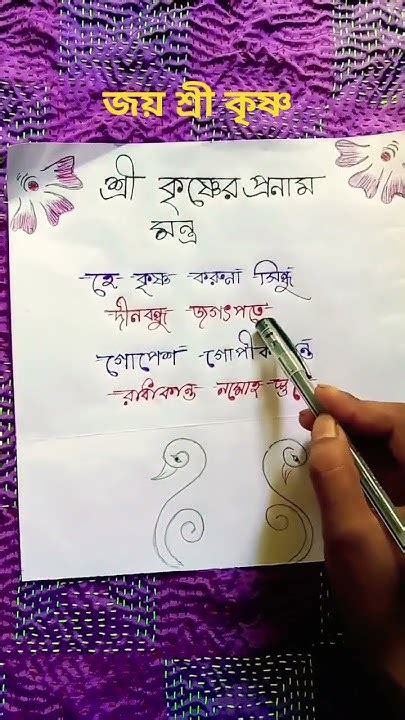 জয় শ্রী কৃষ্ণ
শ্রী কৃষ্ণের প্রনাম
মন্ত্র
হে কৃষ্ণ করুনা সিন্ধু
দীনবন্ধু জগৎপতে
গোপেশ
রাধাকান্ত নমোহ